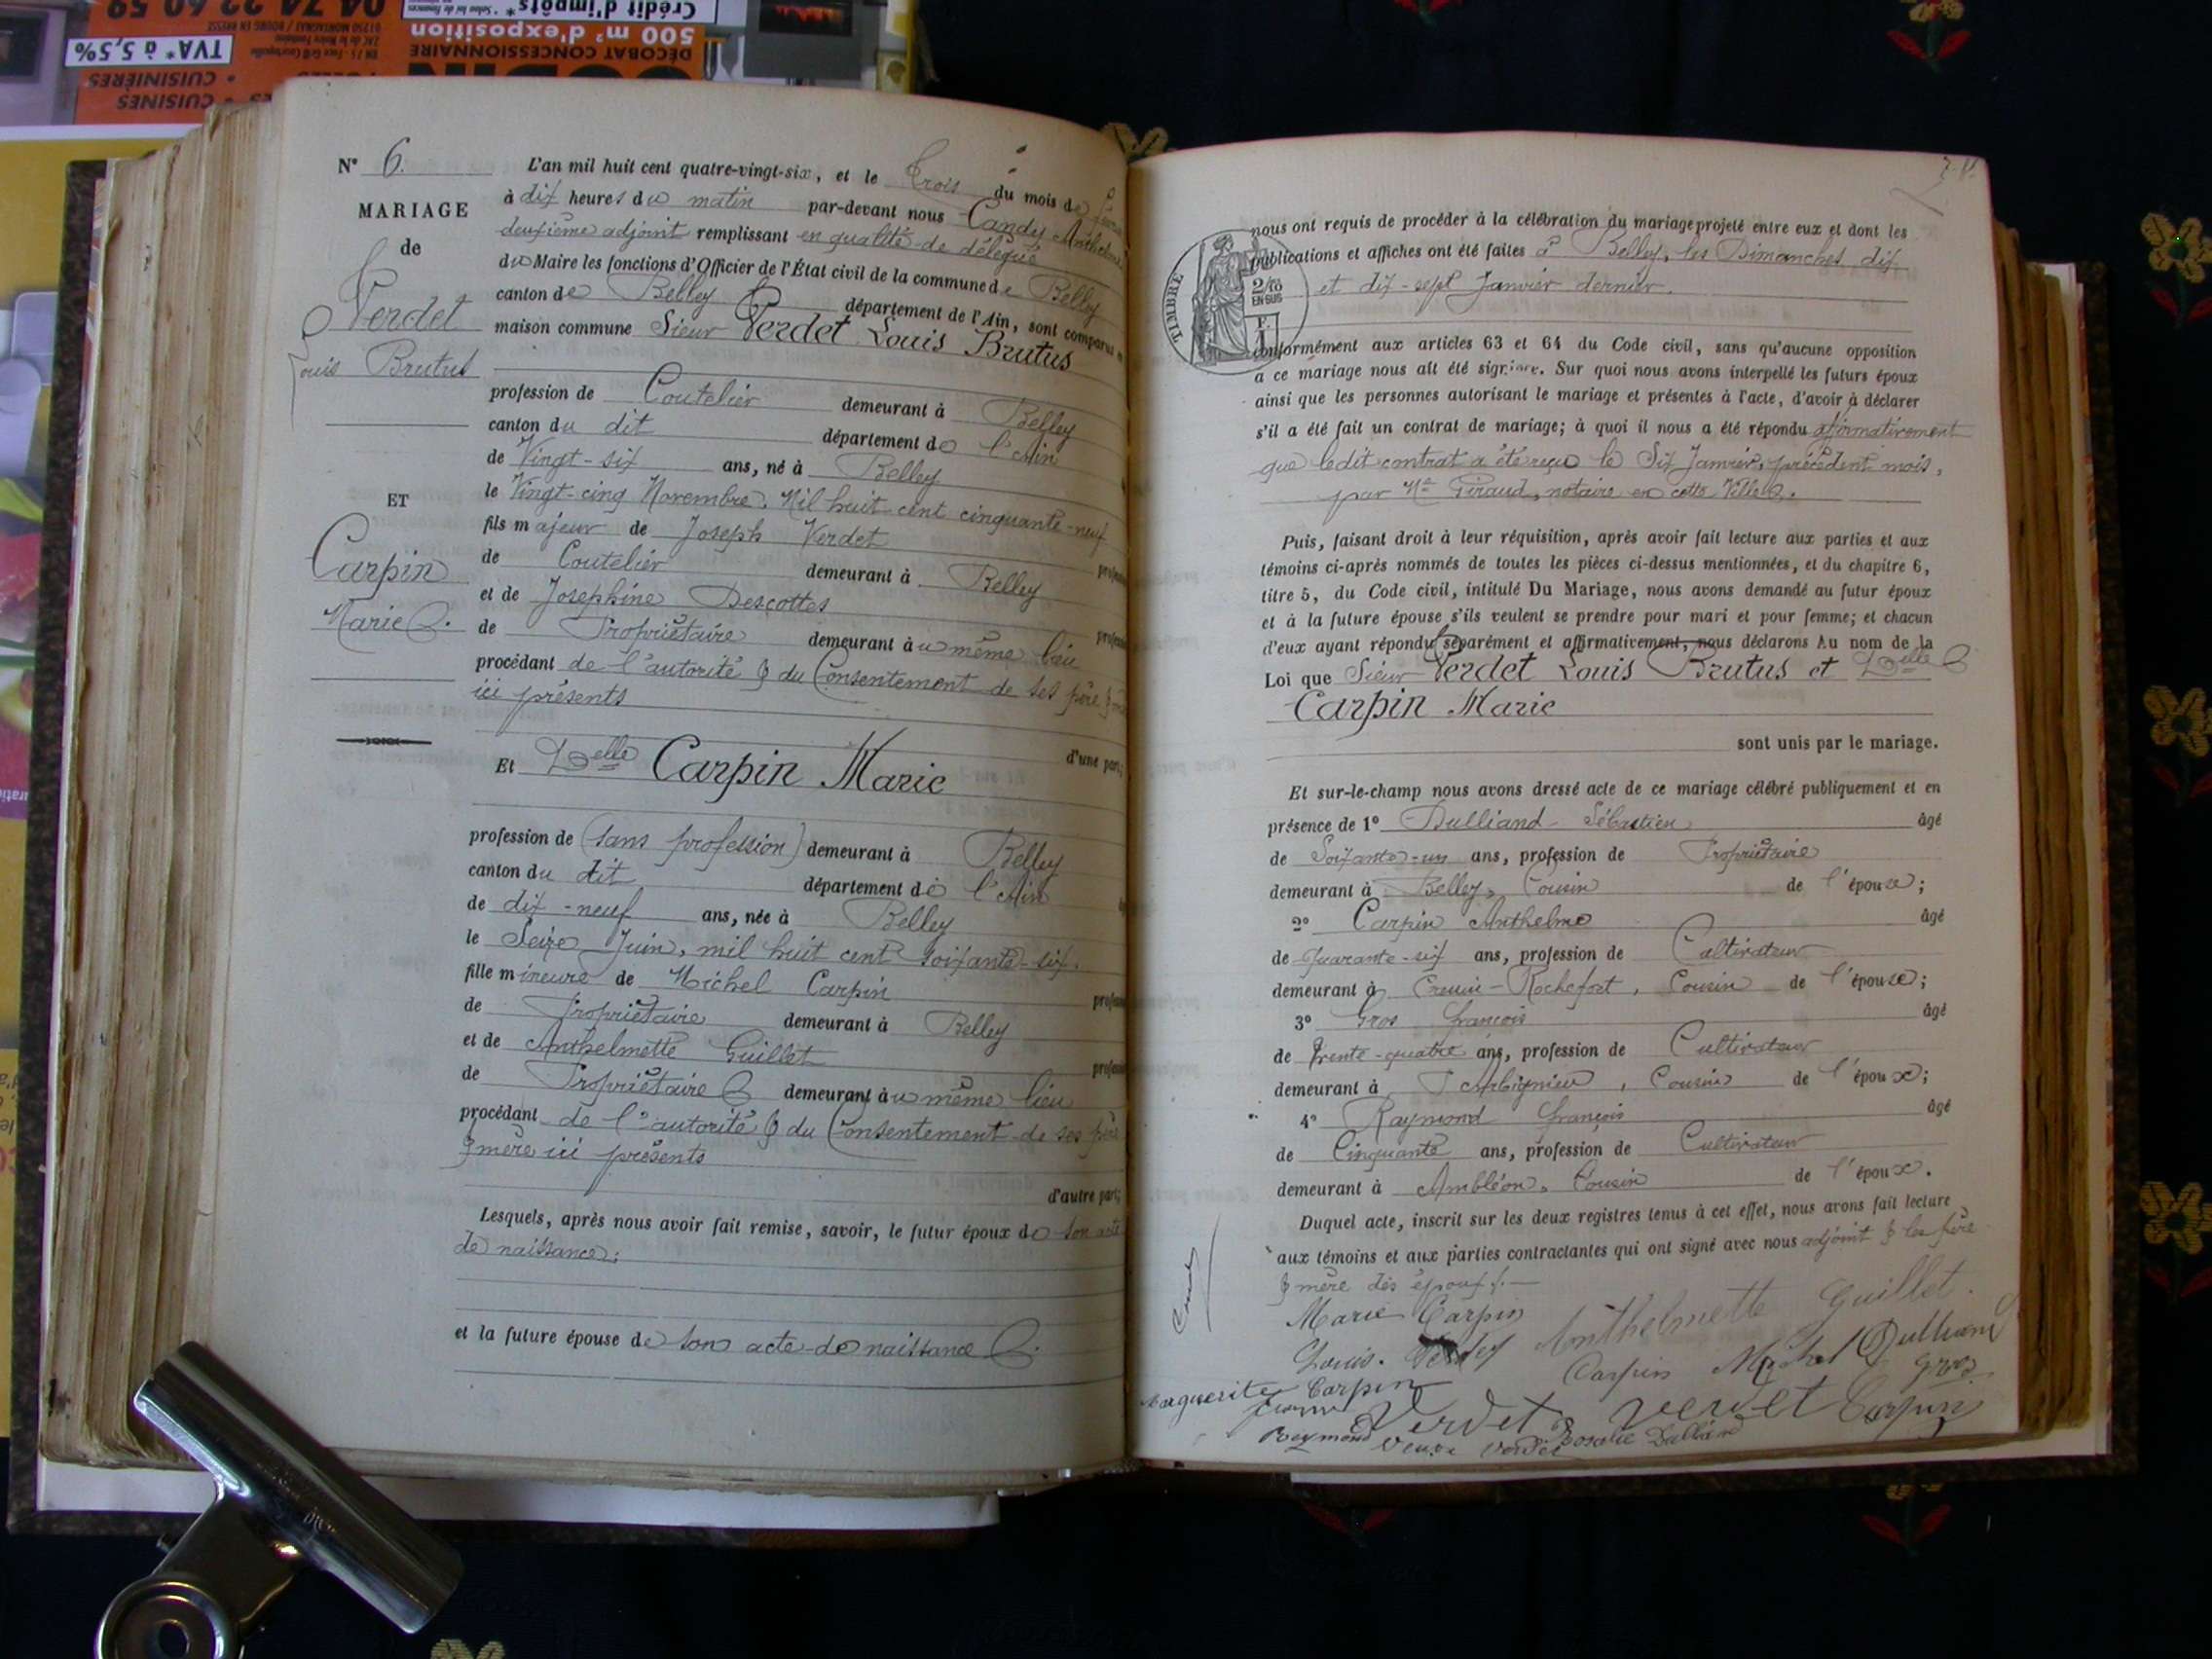 04 74 22 60 59
Crédit d'impôts*
TVA* à 5,5%
500 m² d'exposition
DÉCOBAT CONCESSIONNAIRE
• CUISINIÈRES
• CUISINES
N° 6.
MARIAGE
de
Verdet
Louis Brutus
ET
Carpin
Marie
L'an mil huit cent quatre-vingt-six, et le Trois du mois de
à dix heures du matin par-devant nous Candy Anthelme
deuxième adjoint remplissant en qualité de délégué
du Maire les fonctions d'Officier de l'État civil de la commune de Belley
canton de Belley département de l'Ain, sont comparus
maison commune Sieur Verdet Louis Brutus
profession de Coutelier demeurant à Belley
canton du dit département de l'Ain
de Vingt-six ans, né à Belley
le Vingt-cinq Novembre, Mil huit cent cinquante-neuf
fils majeur de Joseph Verdet
de Coutelier demeurant à Belley
et de Joséphine Descottes
de Propriétaire demeurant au même lieu
procédant de l'autorité & du Consentement de ses père &
ici présents
d'une part;
Et Delle Carpin Marie
profession de (sans profession) demeurant à Belley
canton du dit département de l'Ain
de dix-neuf ans, née à Belley
le Seize Juin, mil huit cent soixante-six.
fille mineure de Michel Carpin
de Propriétaire demeurant à Belley
et de Anthelmette Guillet
de Propriétaire demeurant au même lieu
procédant de l'autorité & du Consentement de ses père
& mère ici présents
d'autre part;
Lesquels, après nous avoir fait remise, savoir, le futur époux de son acte
de naissance;
et la future épouse de son acte de naissance
TIMBRE
2/10
EN SUS
nous ont requis de procéder à la célébration du mariage projeté entre eux et dont les
publications et affiches ont été faites à Belley, les Dimanches dix
et dix-sept Janvier dernier.
conformément aux articles 63 et 64 du Code civil, sans qu'aucune opposition
à ce mariage nous ait été signifiée. Sur quoi nous avons interpellé les futurs époux
ainsi que les personnes autorisant le mariage et présentes à l'acte, d'avoir à déclarer
s'il a été fait un contrat de mariage; à quoi il nous a été répondu affirmativement
que ledit contrat a été reçu le Six Janvier, précédent mois,
par Me Giraud, notaire en cette Ville.
Puis, faisant droit à leur réquisition, après avoir fait lecture aux parties et aux
témoins ci-après nommés de toutes les pièces ci-dessus mentionnées, et du chapitre 6,
titre 5, du Code civil, intitulé Du Mariage, nous avons demandé au futur époux
et à la future épouse s'ils veulent se prendre pour mari et pour femme; et chacun
d'eux ayant répondu séparément et affirmativement, nous déclarons Au nom de la
Loi que Sieur Verdet Louis Brutus et Delle
Carpin Marie
sont unis par le mariage.
Et sur-le-champ nous avons dressé acte de ce mariage célébré publiquement et en
présence de 1° Dulliand Sébastien âgé
de Soixante-un ans, profession de Propriétaire
demeurant à Belley, Cousin de l'épouse;
2° Carpin Anthelme âgé
de Quarante-six ans, profession de Cultivateur
demeurant à Rochefort, Cousin de l'épouse;
3° Gros François âgé
de trente-quatre ans, profession de Cultivateur
demeurant à Arbignieu, Cousin de l'époux;
4° Raymond François âgé
de Cinquante ans, profession de Cultivateur
demeurant à Ambléon, Cousin de l'époux.
Duquel acte, inscrit sur les deux registres tenus à cet effet, nous avons fait lecture
aux témoins et aux parties contractantes qui ont signé avec nous adjoint & les père
& mère des époux.
Marie Carpin Anthelmette Guillet
Louis Verdet Carpin Michel Dulliand
Marguerite Carpin Gros
Verdet Verdet Carpin
Reymond Rosalie Dulliand